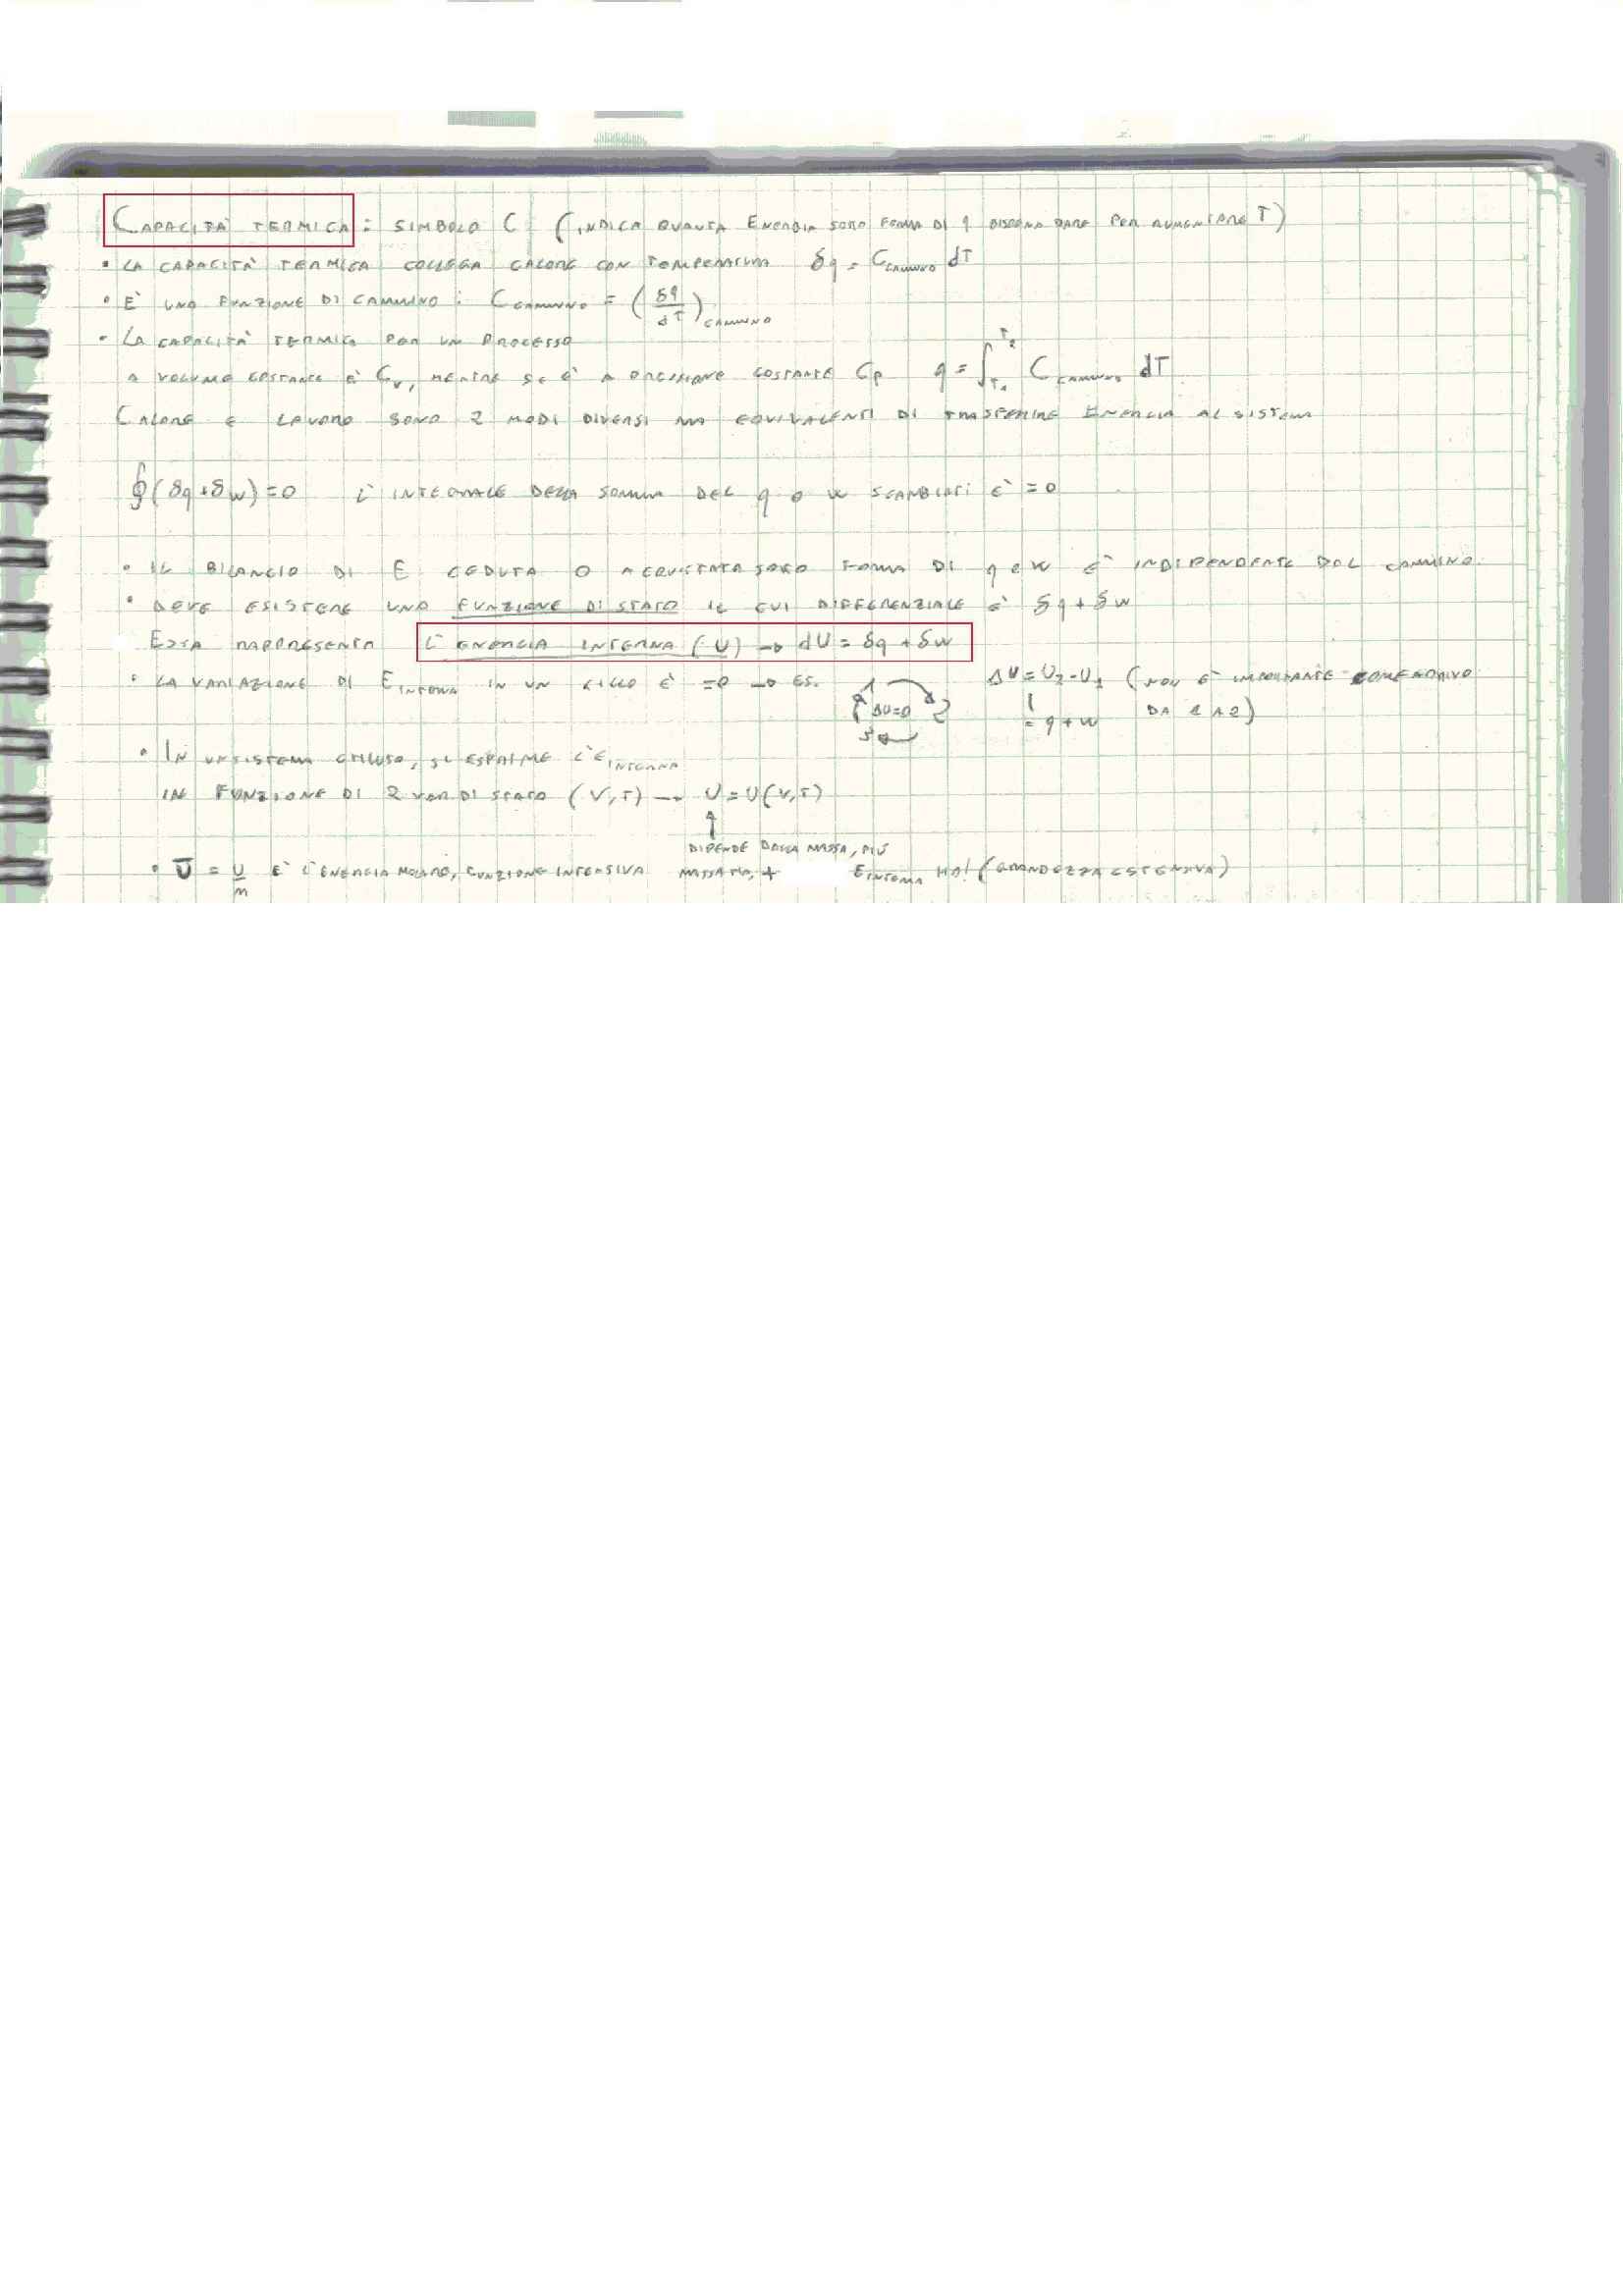 CAPACITÀ TERMICA: SIMBOLO C (INDICA QUANTA ENERGIA SOTTO FORMA DI q BISOGNA DARE PER AUMENTARE T)
• LA CAPACITÀ TERMICA COLLEGA CALORE CON TEMPERATURA δq = C_CAMMINO dT
• È UNA FUNZIONE DI CAMMINO: C_CAMMINO = (δq/dT)_CAMMINO
• LA CAPACITÀ TERMICA PER UN PROCESSO
A VOLUME COSTANTE È Cv, MENTRE SE È A PRESSIONE COSTANTE Cp q = ∫_T1^T2 C_CAMMINO dT
CALORE E LAVORO SONO 2 MODI DIVERSI MA EQUIVALENTI DI TRASFERIRE ENERGIA AL SISTEMA
∮(δq+δw)=0 L'INTEGRALE DELLA SOMMA DEL q O W SCAMBIATI È =0
• IL BILANCIO DI E CEDUTA O ACQUISTATA SOTTO FORMA DI q e W È INDIPENDENTE DAL CAMMINO
• DEVE ESISTERE UNA FUNZIONE DI STATO IL CUI DIFFERENZIALE È δq+δw
ESSA RAPPRESENTA L'ENERGIA INTERNA (U) → dU = δq + δw
• LA VARIAZIONE DI E_INTERNA IN UN CICLO È =0 → ES. 1 ΔU=0 2 3 ΔU = U2-U1 (NON È IMPORTANTE COME ARRIVO
= q+w DA 1 A 2)
• IN UN SISTEMA CHIUSO, SI ESPRIME L'E_INTERNA
IN FUNZIONE DI 2 VAR DI STATO (V,T) → U=U(V,T)
DIPENDE DALLA MASSA, PIÙ
• Ū = U/m È L'ENERGIA MOLARE, FUNZIONE INTENSIVA MASSA HO, + E_INTERNA HO! (GRANDEZZA ESTENSIVA)